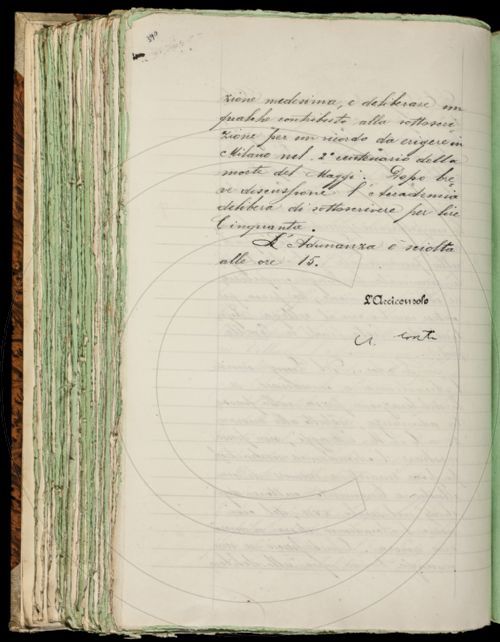 zione medesima, e deliberare un
qualche contributo alla sottoscri-
zione per un ricordo da erigere in
Milano nel 2° centenario della
morte del Maggi. Dopo bre-
ve discussione l'Accademia
delibera di sottoscrivere per lire
Cinquanta.
L'Adunanza è sciolta
alle ore 15.
L'Arciconsolo
A. Conti